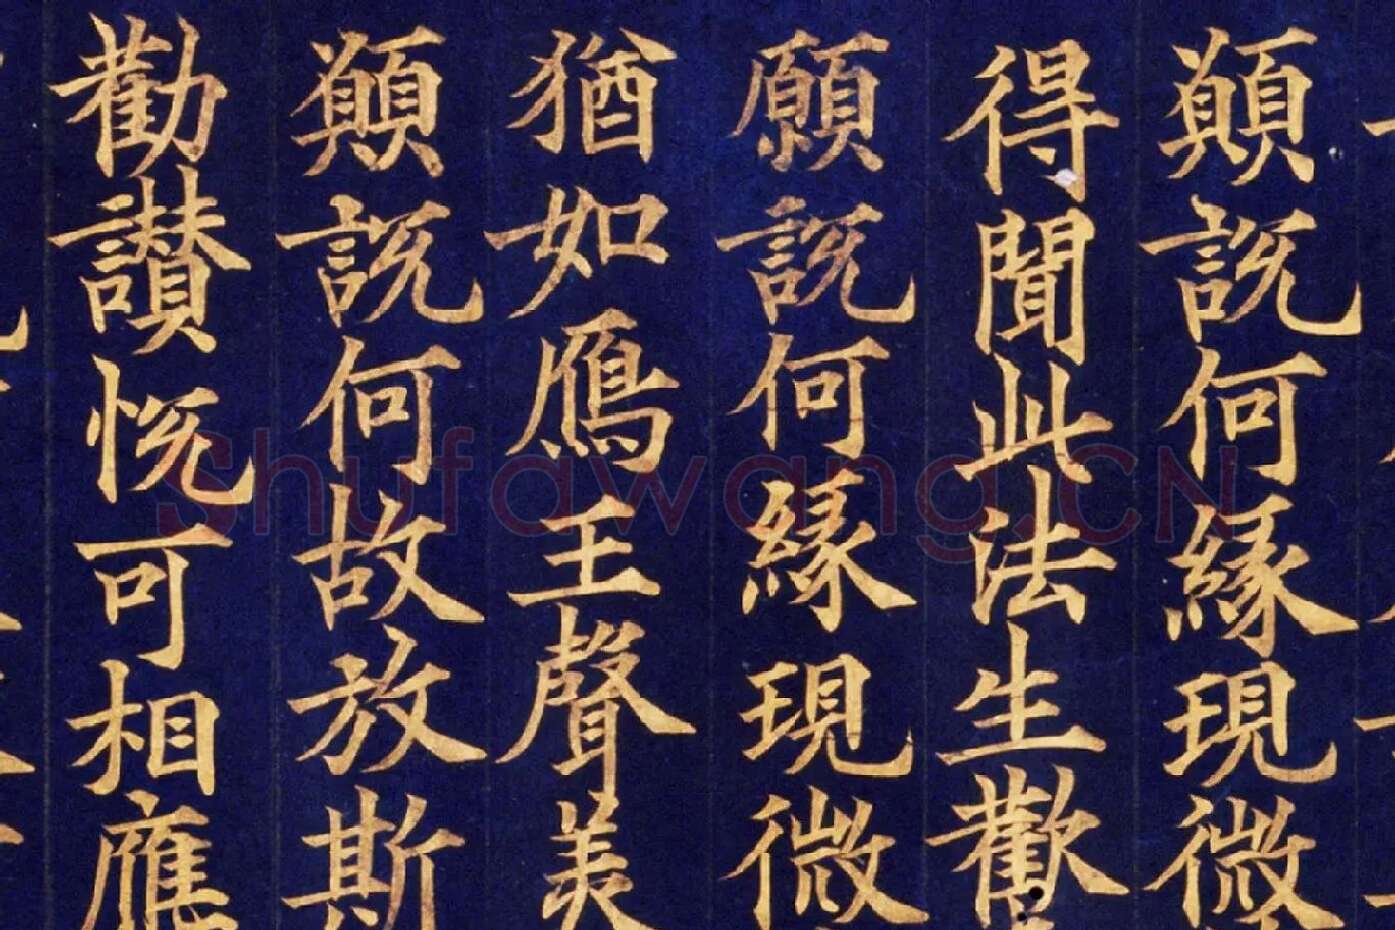 顛説何縁現微
得聞此法生歡
願説何縁現微
猶如鴈王聲美
顛説何故放斯
勸讃悦可相應
Shufawang.CN